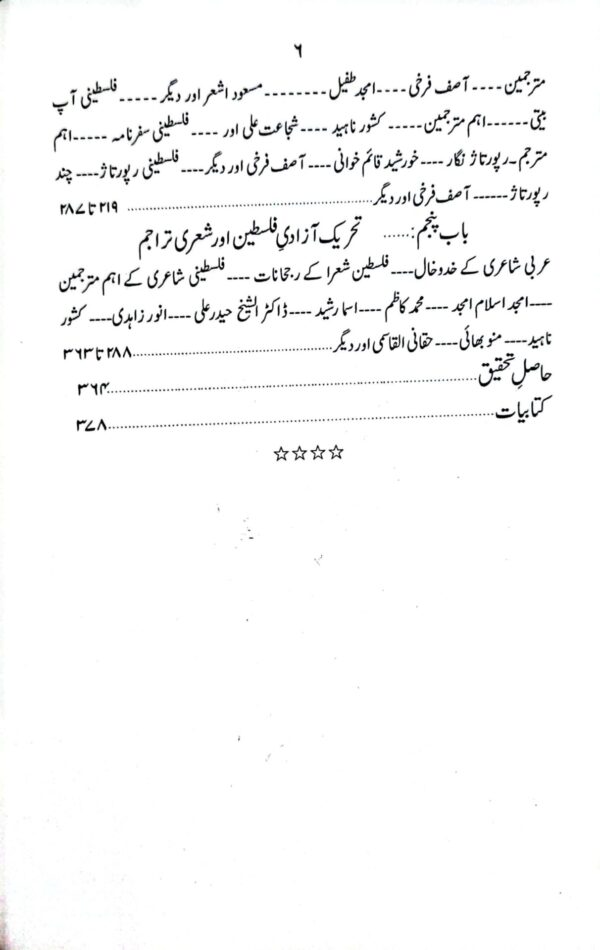 ۶
مترجمین ---- آصف فرخی ---- امجد طفیل -------- مسعود اشعر اور دیگر ----- فلسطینی آپ
بیتی ------ اہم مترجمین ----- کشور ناہید ---- شجاعت علی اور ---- فلسطینی سفرنامہ ----- اہم
مترجم۔رپورتاژ نگار ---- خورشید قائم خوانی ---- آصف فرخی اور دیگر ---- فلسطینی رپورتاژ ---- چند
رپورتاژ ------ آصف فرخی اور دیگر ........................ ۲۱۹ تا ۲۸۷
باب پنجم: ...... تحریک آزادیِ فلسطین اور شعری تراجم
عربی شاعری کے خدوخال ---- فلسطین شعرا کے رجحانات ---- فلسطینی شاعری کے اہم مترجمین
---- امجد اسلام امجد ---- محمد کاظم ---- اسما رشید ---- ڈاکٹر الشیخ حیدر علی ---- انور زاہدی ---- کشور
ناہید ---- منو بھائی ---- حقانی القاسمی اور دیگر ........................ ۲۸۸ تا ۳۶۳
حاصلِ تحقیق ........................ ۳۶۴
کتابیات ........................ ۳۷۸
☆☆☆☆